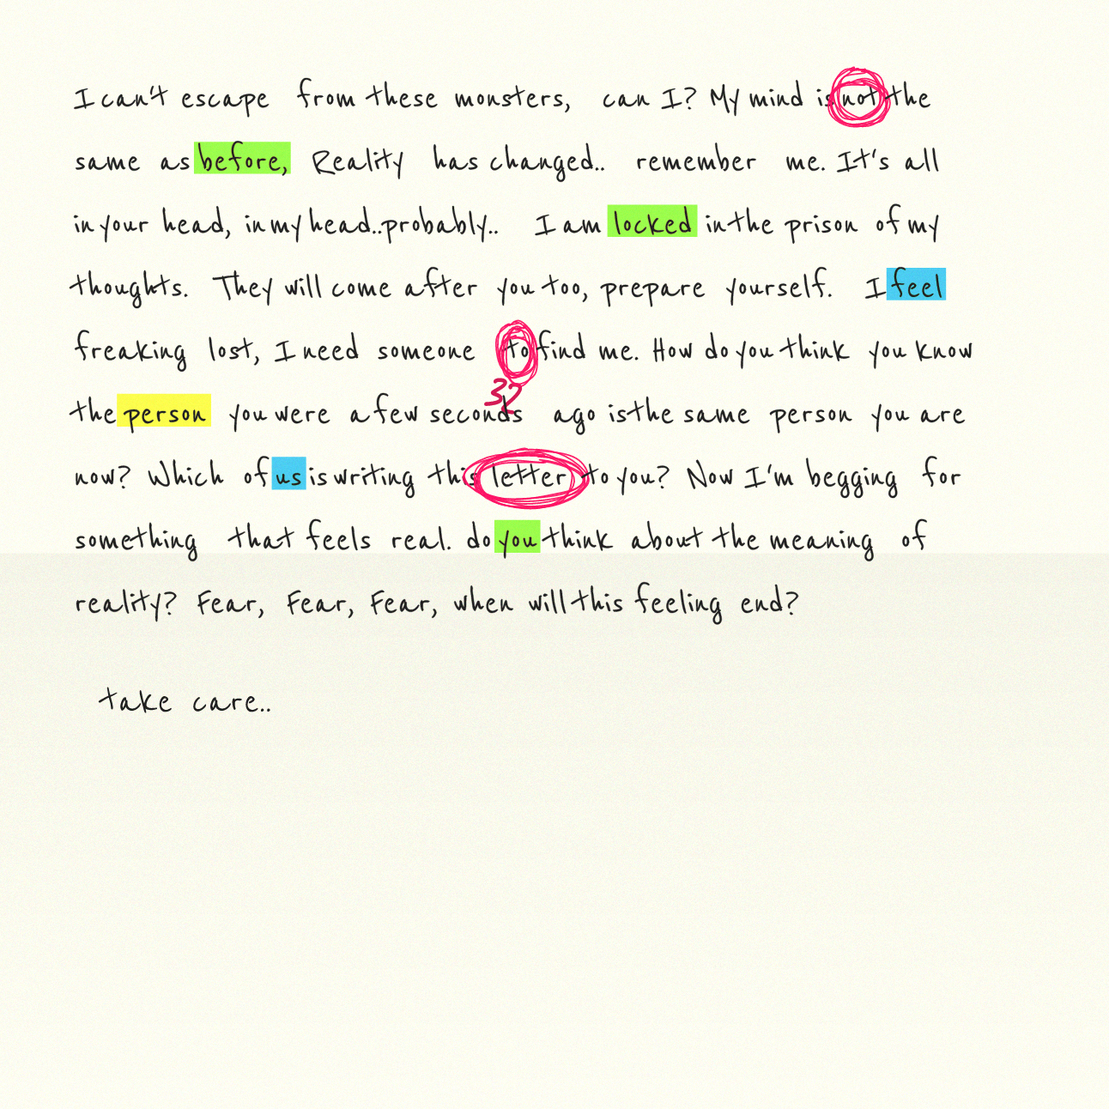 I can't escape from these monsters, can I? My mind is not the
same as before, Reality has changed.. remember me. It's all
in your head, in my head..probably.. I am locked in the prison of my
thoughts. They will come after you too, prepare yourself. I feel
freaking lost, I need someone to find me. How do you think you know
32
the person you were a few seconds ago is the same person you are
now? Which of us is writing this letter to you? Now I'm begging for
something that feels real. do you think about the meaning of
reality? Fear, Fear, Fear, when will this feeling end?
take care..